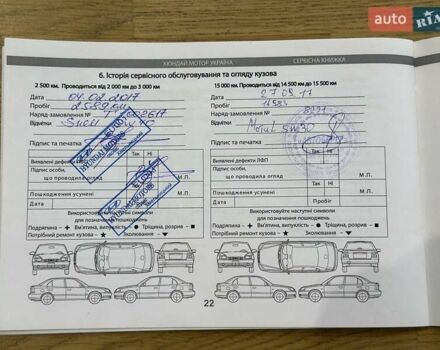 auto RIA
ХЮНДАЙ МОТОР УКРАЇНА
СЕРВІСНА КНИЖКА
6. Історія сервісного обслуговування та огляду кузова
2 500 км. Проводиться від 2 000 км до 3 000 км
Дата 04.02.2017
Пробіг 2589 км
Наряд-замовлення №
Відмітки Shell
Підпис та печатка
Так Ні
Виявлені дефекти
Підпис особи,
що проводила огляд М.П.
Пошкодження усунені М.П.
Дата Пробіг
Використовуйте наступні символи
для позначення пошкоджень
Подряпина - Вм'ятина, випуклість - Тріщина, розрив -
Потрібний ремонт кузова - Зколювання -
15 000 км. Проводиться від 14 500 км до 15 500 км
Дата 27.09.17
Пробіг
Наряд-замовлення №
Відмітки Motul 5w30
Підпис та печатка
Так Ні
Виявлені дефекти ЛФП
Підпис особи,
що проводила огляд М.П.
Пошкодження усунені М.П.
Дата Пробіг
Використовуйте наступні символи
для позначення пошкоджень
Подряпина - Вм'ятина, випуклість - Тріщина, розрив -
Потрібний ремонт кузова - Зколювання -
22